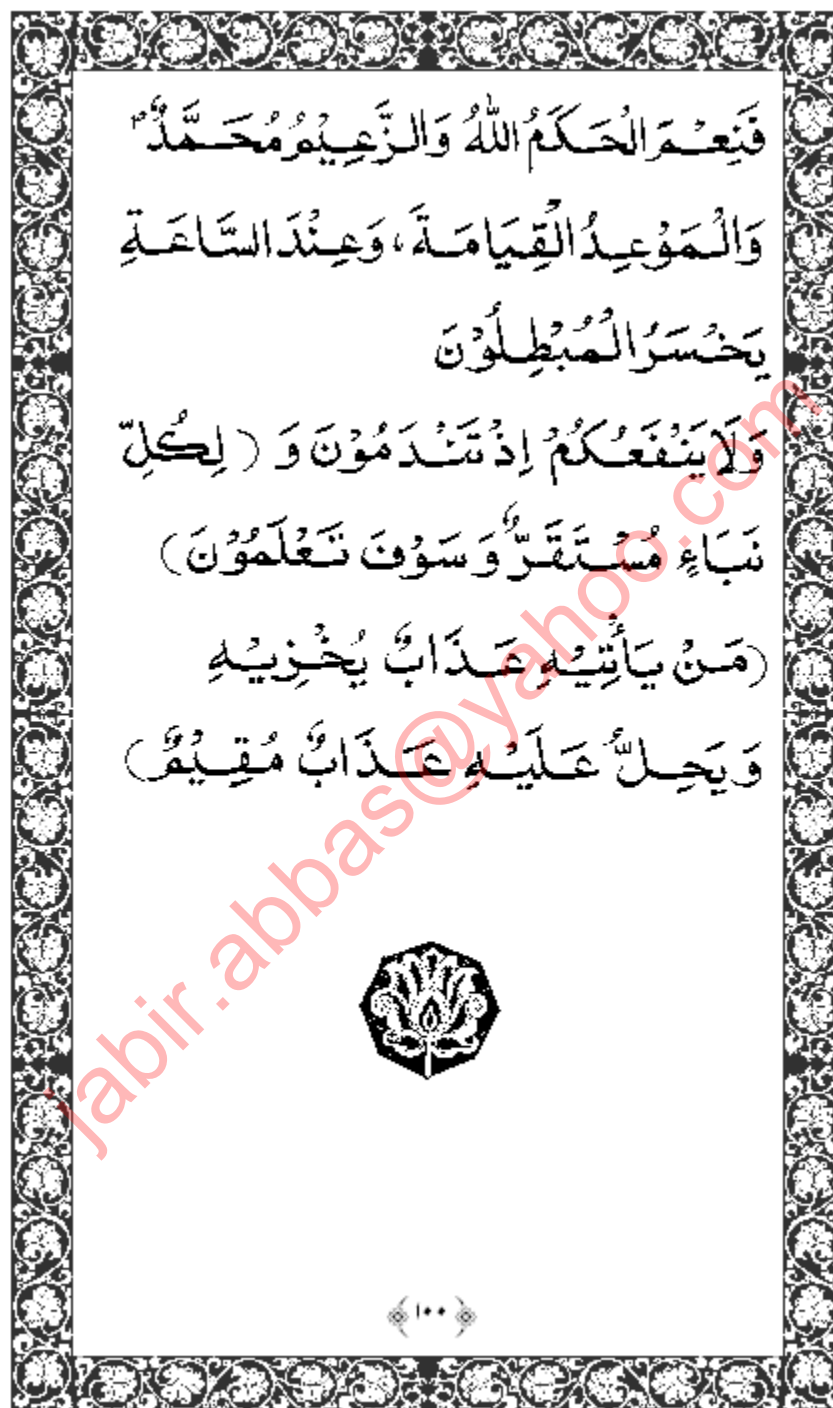 فَنِعْمَ الْحَكَمُ اللهُ وَالزَّعِيْمُ مُحَمَّدٌ ۢ
وَالْمَوْعِدُ الْقِيَامَةَ، وَعِنْدَ السَّاعَةِ
يَخْسَرُ الْمُبْطِلُوْنَ
وَلَا يَنْفَعُكُمْ اِذْ تَنْدَمُوْنَ وَ (لِكُلِّ
نَبَاءٍ مُسْتَقَرٌّ وَسَوْفَ تَعْلَمُوْنَ)
(مَنْ يَأْتِيْهِ عَذَابٌ يُخْزِيْهِ
وَيَحِلُّ عَلَيْهِ عَذَابٌ مُقِيْمٌ)
jabir.abbas@yahoo.com
١٠٠